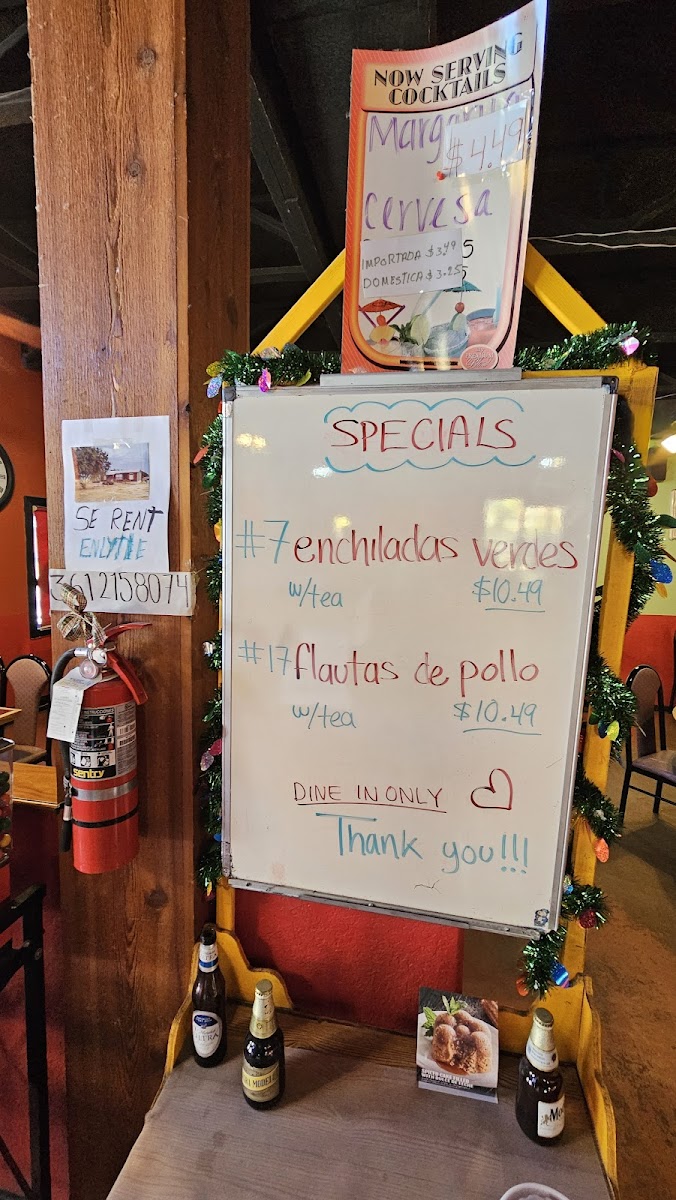 NOW SERVING
COCKTAILS
$4.49
Cervesa
IMPORTADA $3.49
DOMESTICA $3.25
5
SPECIALS
#7 enchiladas verdes
w/tea $10.49
#17 flautas de pollo
w/tea $10.49
DINE IN ONLY
Thank you!!!
SE RENT
3612158074
sentry